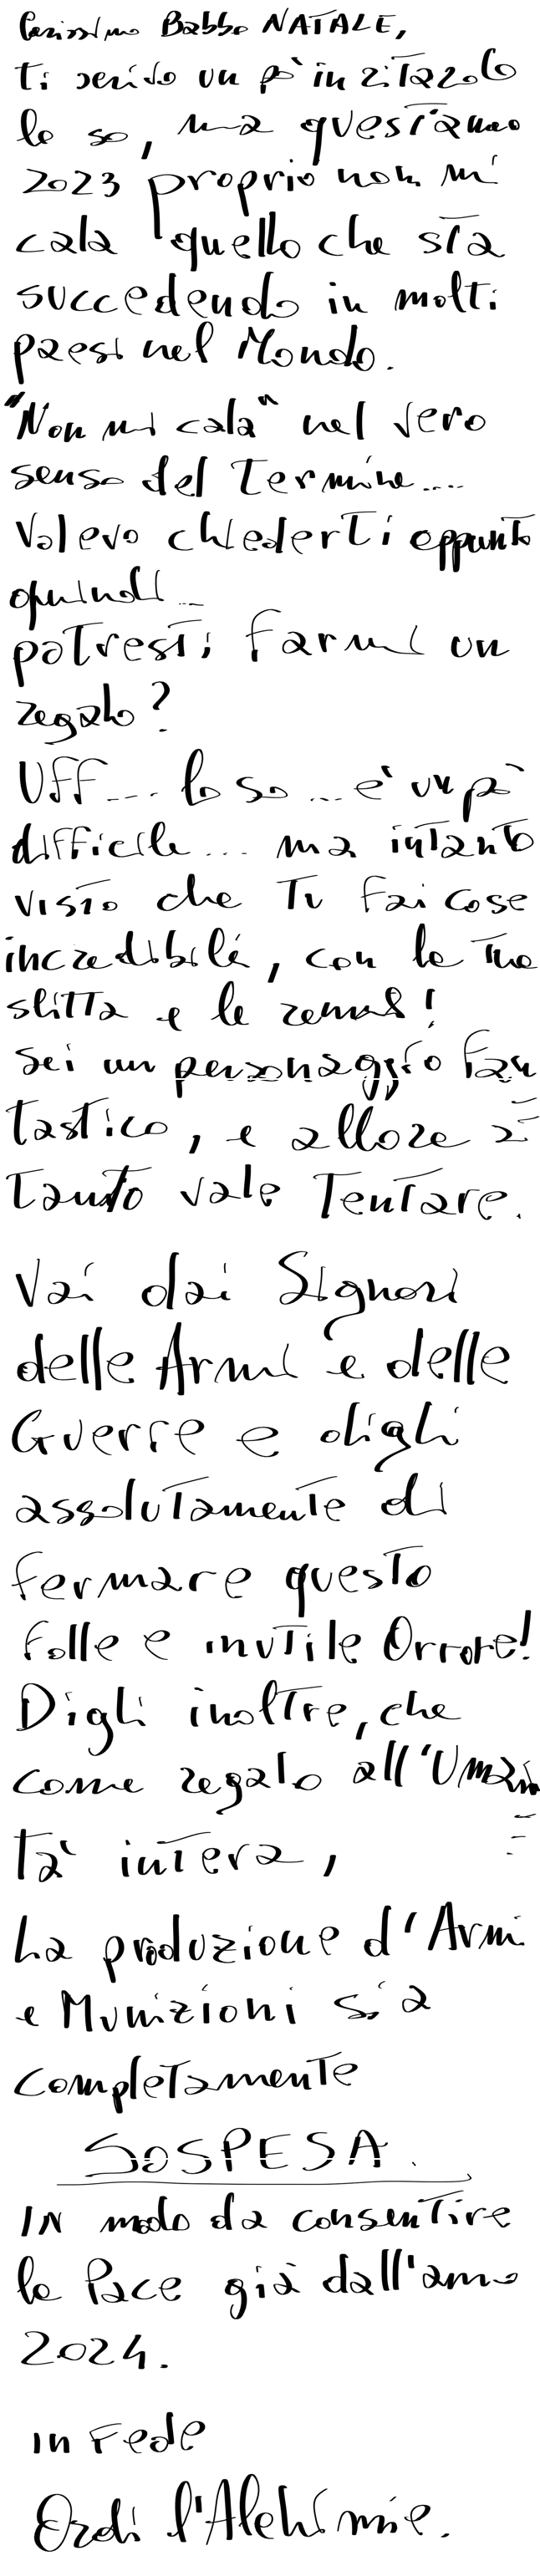 Carissimo Babbo NATALE,
ti scrivo un pò in ritardo
lo so, ma quest'anno
2023 proprio non mi
cala quello che sta
succedendo in molti
paesi nel Mondo.
"Non mi cala" nel vero
senso del termine....
Volevo chiederti appunto
quindi...
potresti farmi un
regalo?
Uff.... lo so... è un pò
difficile... ma intanto
visto che tu fai cose
incredibili, con la tua
slitta e le renne!
sei un personaggio fan
tastico, e allora a
tanto vale tentare.
Vai dai Signori
delle Armi e delle
Guerre e digli
assolutamente di
fermare questo
folle e inutile Orrore!
Digli inoltre, che
come regalo all'Umani
tà intera,
La produzione d'Armi
e Munizioni sia
completamente
SOSPESA.
IN modo da consentire
la Pace già dall'anno
2024.
in Fede
Ordi l'Alchimie.